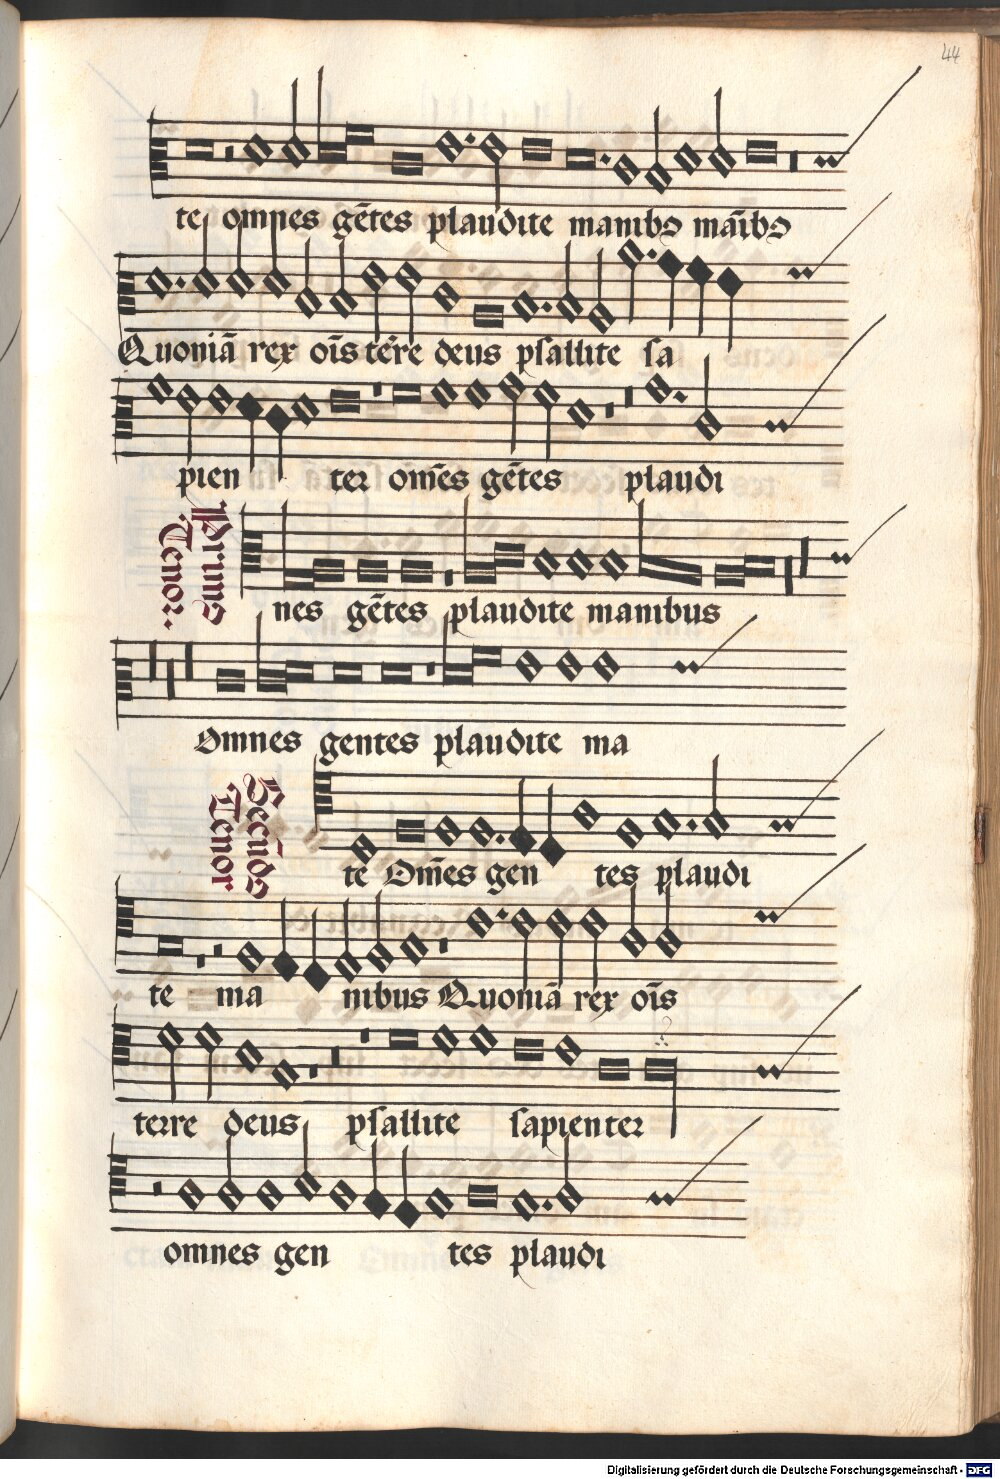 44
te omnes gē̄tes plaudite manibꝯ māibꝯ
Quoniā rex oīs terre deus psallite sa
pien ter om̄es gētes plaudi
Primus
Tenor.
nes gētes plaudite manibus
Omnes gentes plaudite ma
Secūdꝯ
Tenor
te Om̄es gen tes plaudi
te ma nibus Quoniā rex oīs
terre deus psallite sapienter
omnes gen tes plaudi
Digitalisierung gefördert durch die Deutsche Forschungsgemeinschaft - DFG